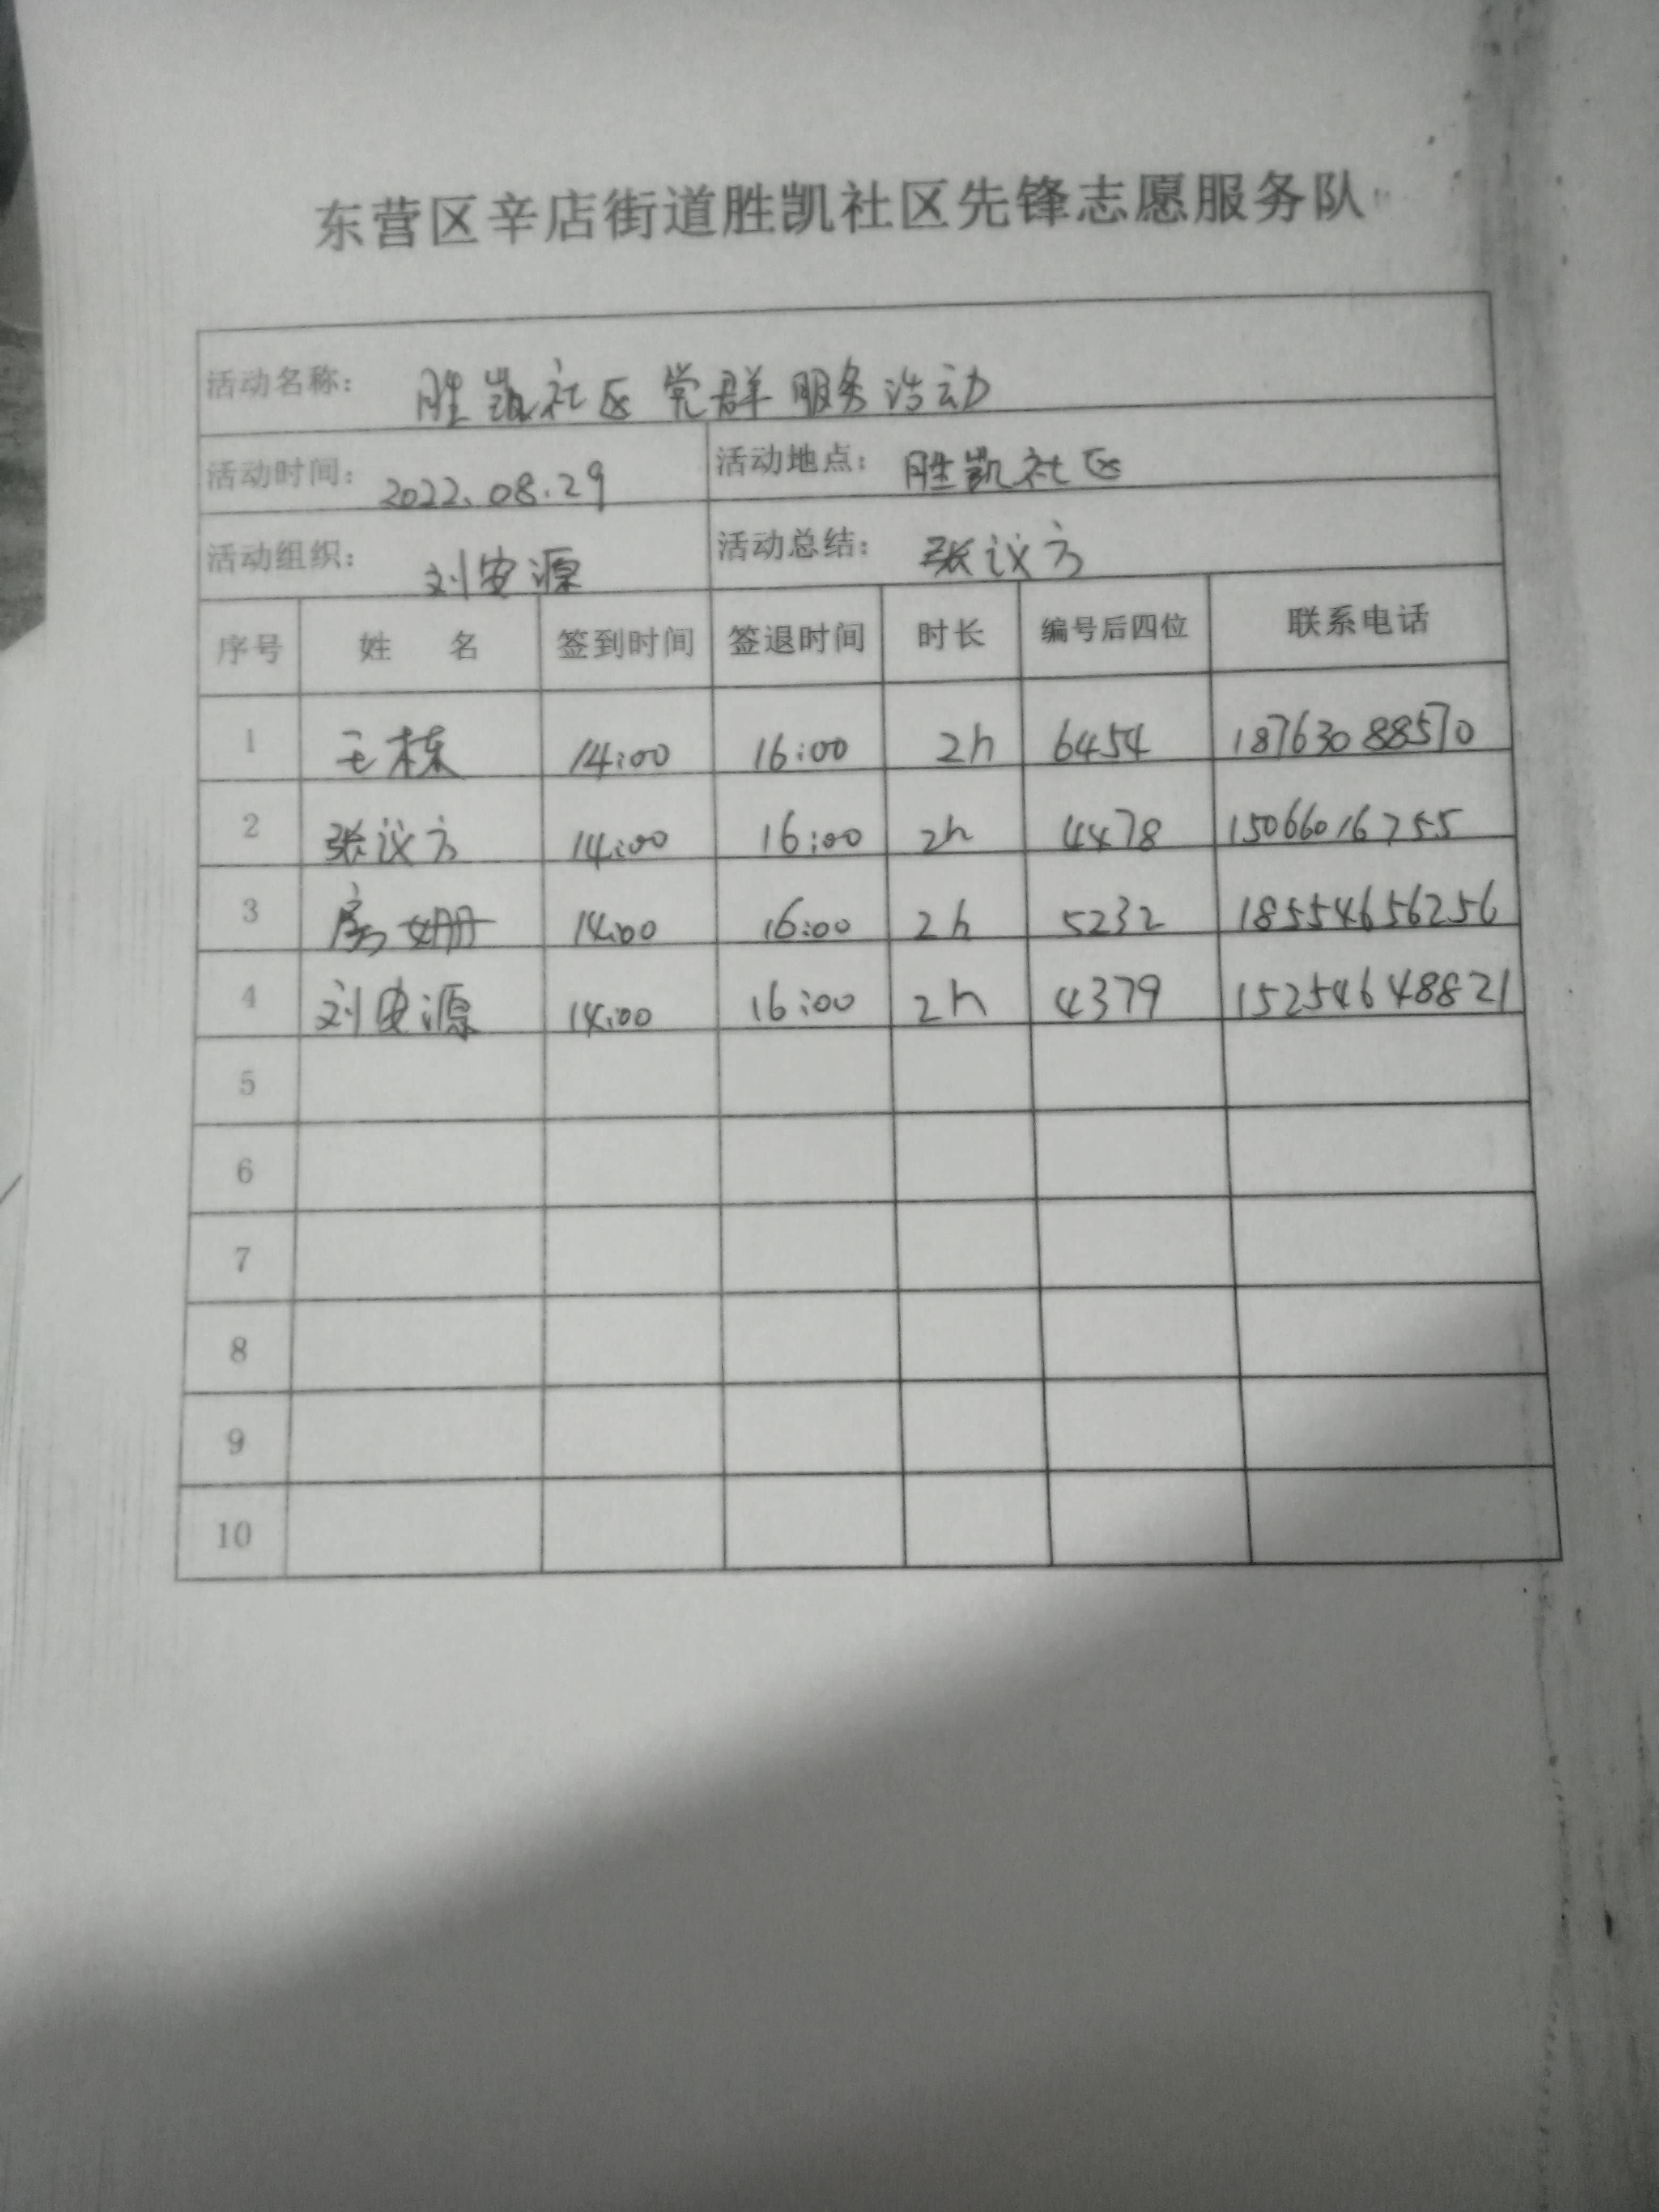 东营区辛店街道胜凯社区先锋志愿服务队
活动名称： 胜凯社区党群服务活动
活动时间： 2022.08.29 活动地点： 胜凯社区
活动组织： 刘安源 活动总结： 张议方
序号 姓 名 签到时间 签退时间 时长 编号后四位 联系电话
1 王栋 14:00 16:00 2h 6454 18763088570
2 张议方 14:00 16:00 2h 4478 15066016755
3 房姗 14:00 16:00 2h 5232 18554656256
4 刘安源 14:00 16:00 2h 4379 15254648821
5
6
7
8
9
10